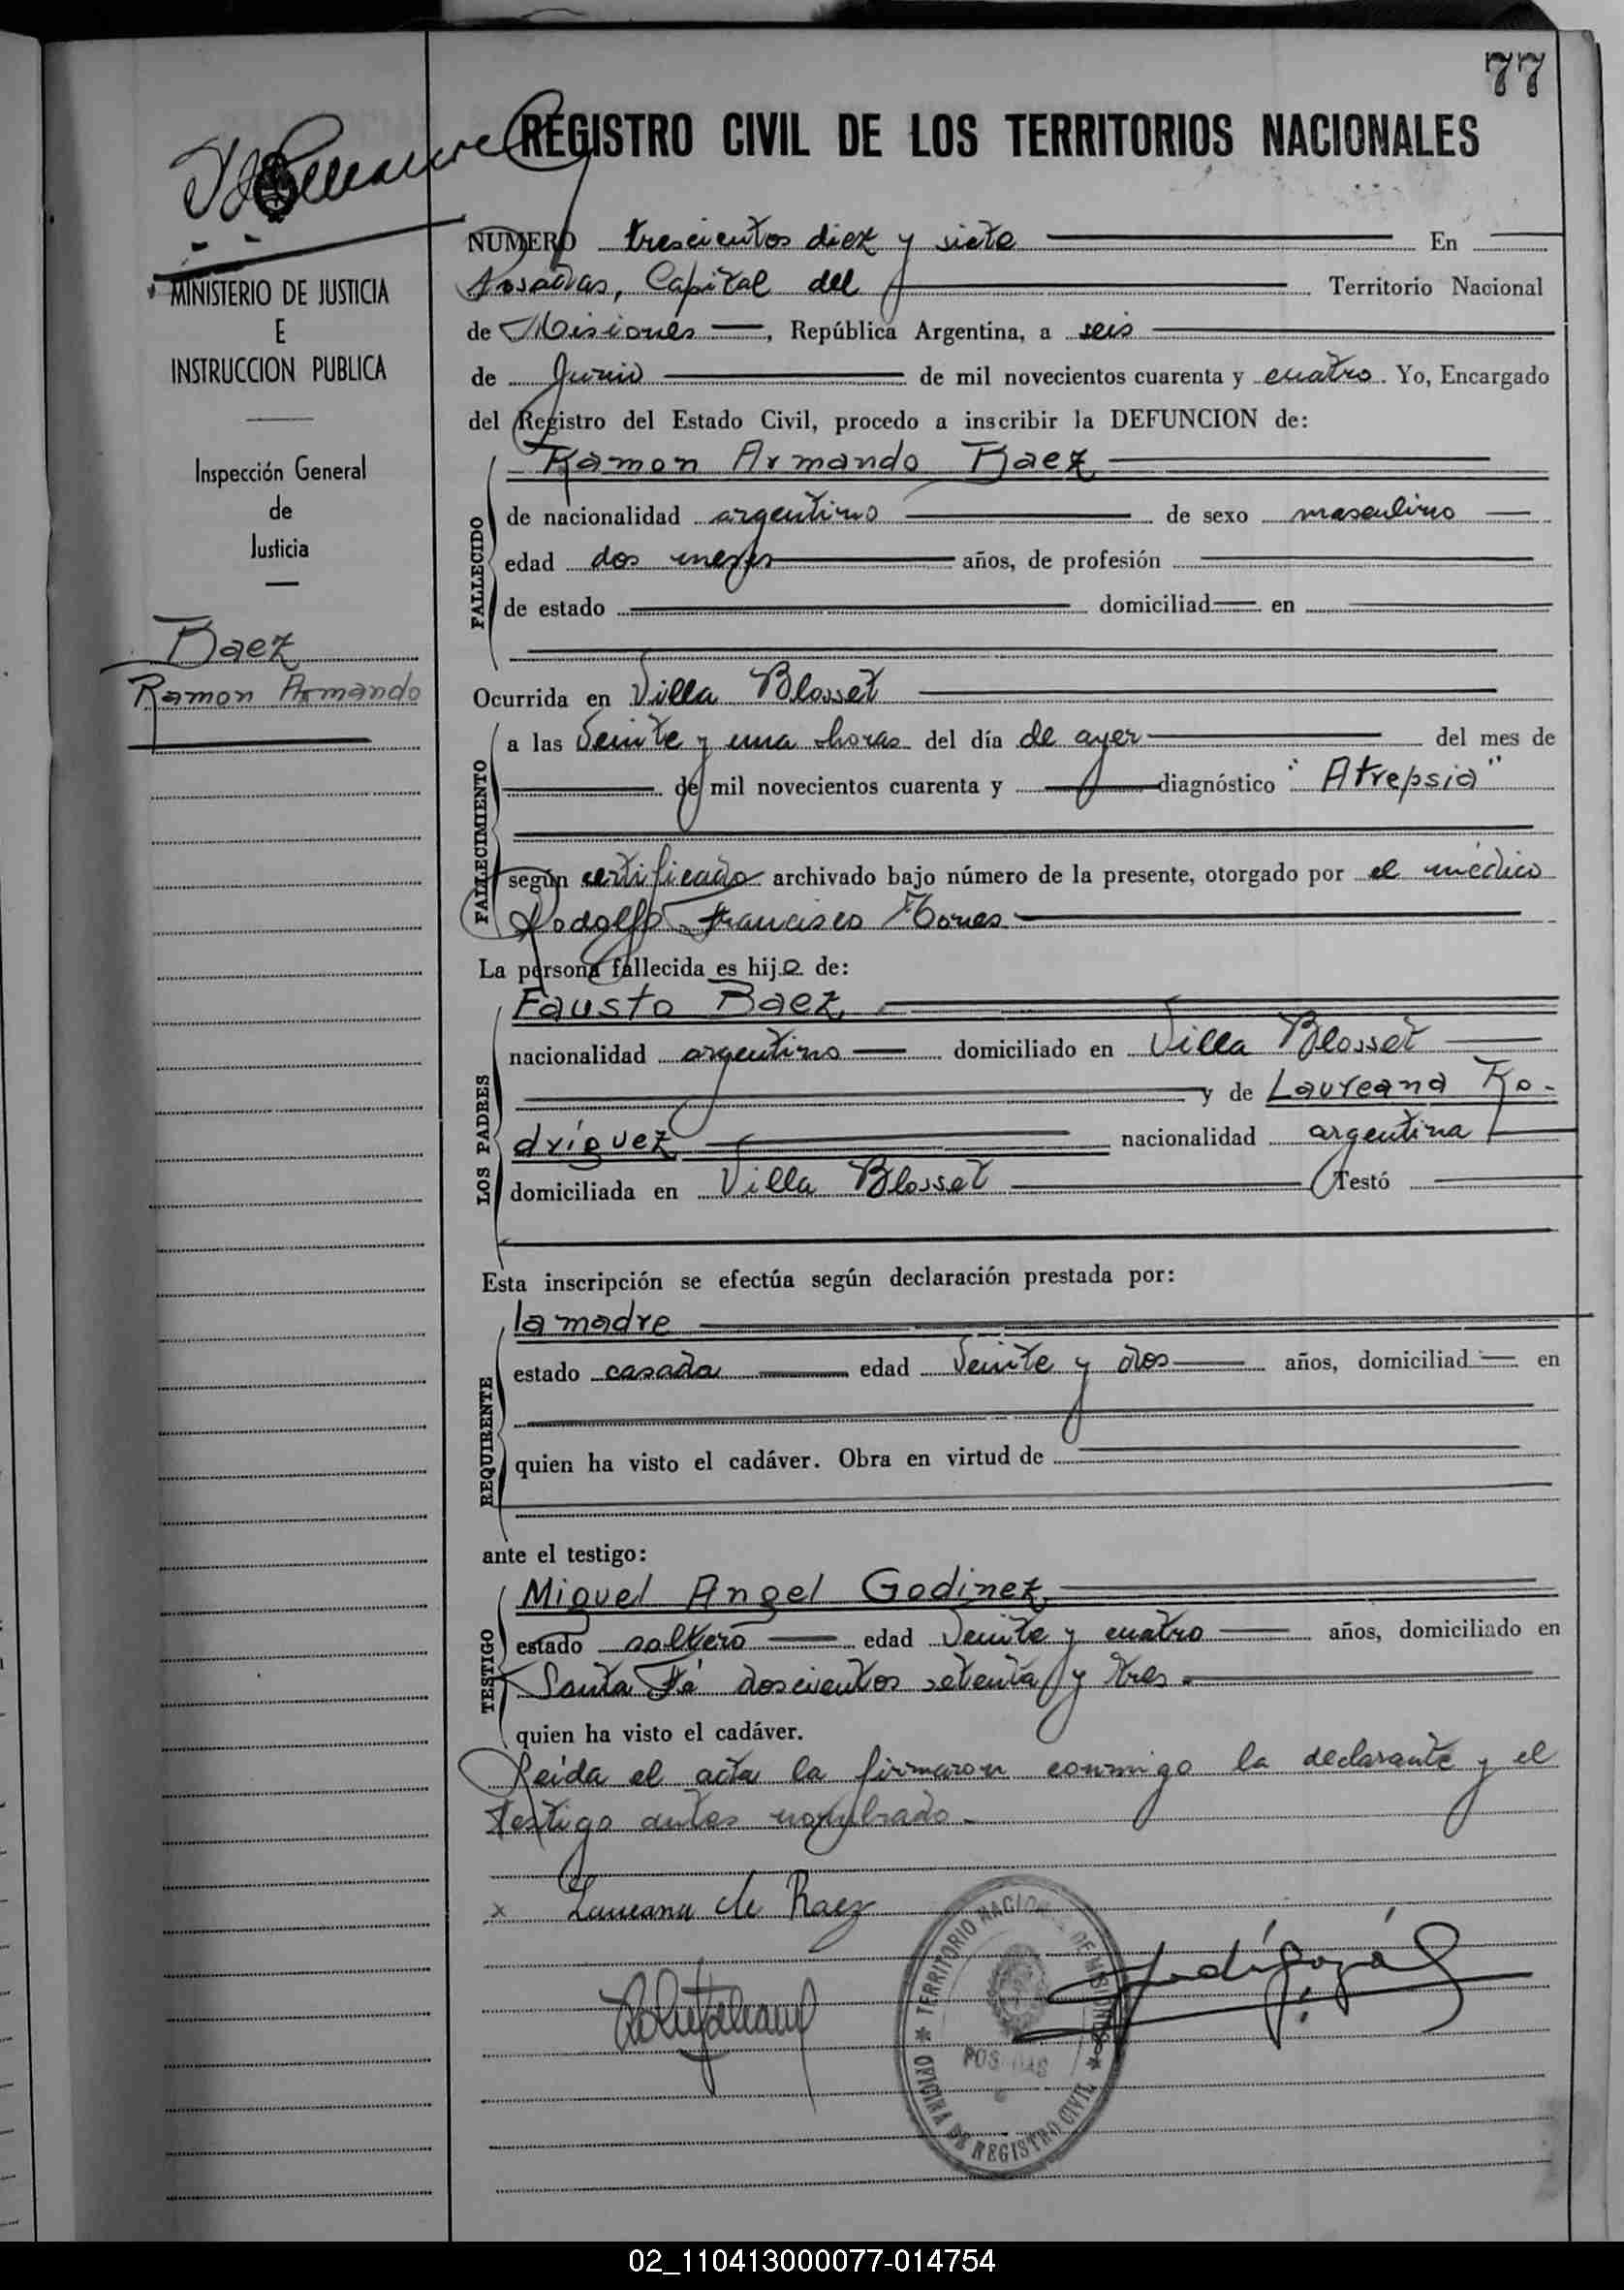 77
REGISTRO CIVIL DE LOS TERRITORIOS NACIONALES
MINISTERIO DE JUSTICIA
E
INSTRUCCION PUBLICA
Inspección General
de
Justicia
Baez
Ramon Armando
NUMERO trescientos diez y siete En
Posadas, Capital del Territorio Nacional
de Misiones, República Argentina, a seis
de Junio de mil novecientos cuarenta y cuatro. Yo, Encargado
del Registro del Estado Civil, procedo a inscribir la DEFUNCION de:
Ramon Armando Baez
FALLECIDO
de nacionalidad argentino de sexo masculino
edad dos meses años, de profesión
de estado domiciliad en
Ocurrida en Villa Blosset
FALLECIMIENTO
a las Veinte y una horas del día de ayer del mes de
de mil novecientos cuarenta y diagnóstico "Atrepsia"
según certificado archivado bajo número de la presente, otorgado por el médico
Rodolfo Francisco
La persona fallecida es hijo de:
Fausto Baez
LOS PADRES
nacionalidad argentino domiciliado en Villa Blosset
y de Laureana Ro-
dríguez nacionalidad argentina
domiciliada en Villa Blosset Testó
Esta inscripción se efectúa según declaración prestada por:
la madre
REQUIRENTE
estado casada edad Veinte y dos años, domiciliad en
quien ha visto el cadáver. Obra en virtud de
ante el testigo:
Miguel Angel Godinez
TESTIGO
estado soltero edad Veinte y cuatro años, domiciliado en
Santa Fé doscientos setenta y tres.
quien ha visto el cadáver.
Leída el acta la firmaron conmigo la declarante y el
testigo antes nombrado.-
x Laureana de Baez
TERRITORIO NACIONAL DE MISIONES
POSADAS
OFICINA DE REGISTRO CIVIL
02_110413000077-014754